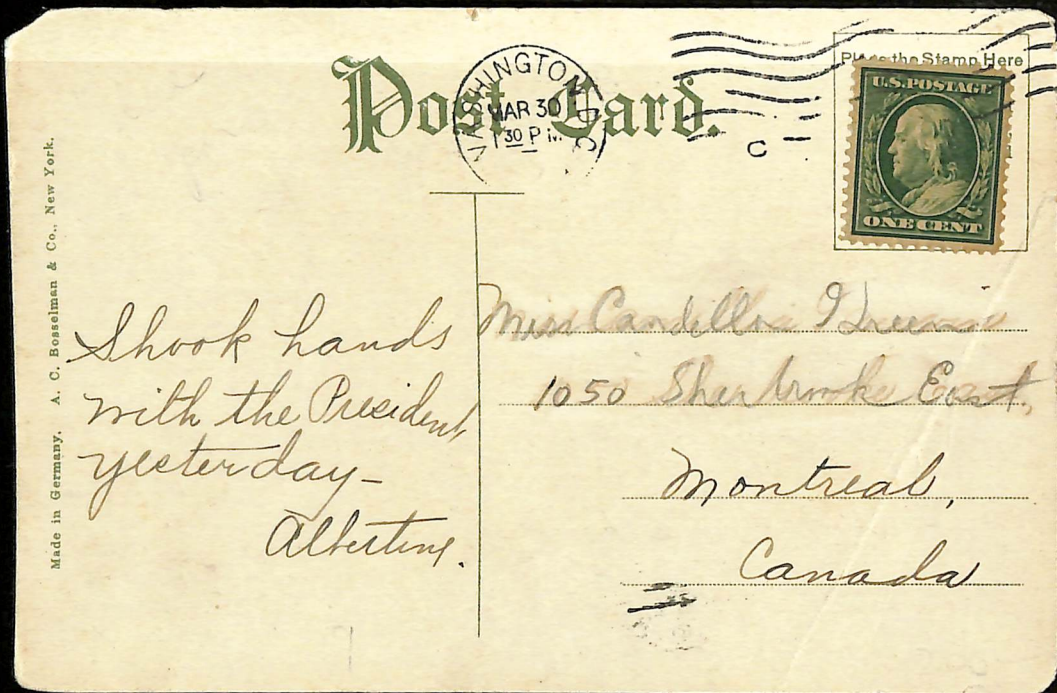 Post Card.
WASHINGTON D.C.
MAR 30
30 P M
C
Place the Stamp Here
U.S. POSTAGE
ONE CENT
Made in Germany. A. C. Bosselman & Co., New York.
Shook hands
with the President
yesterday—
Albertine.
Miss
1050 Sherbrooke East,
Montreal,
Canada